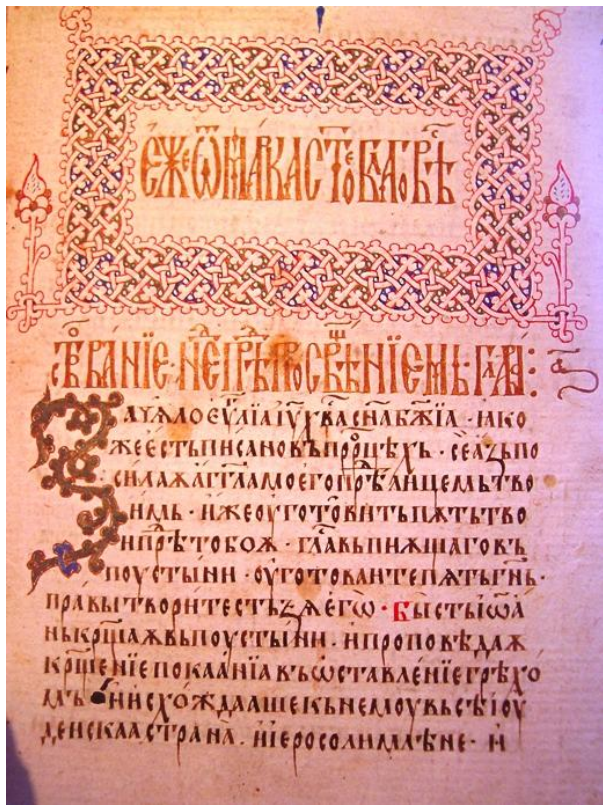 еже ѿ марка ст҃ое бл҃гов̾ѣ
ствованїе · нед̾ · прѣд̾ просвѣщенїемь · гл҃а а҃ :
Зачѧло еѵ҃лїа і҃ѵ х҃ва сн҃а бж҃їа · ꙗко
же есть писано въ прⷪ҇роцѣхь · се азь по
силаѫ агг҃ла моего прѣд̾ лицемь тво
имь · иже оуготовить пѫть тво
и прѣд̾ тобоѫ · гла҃сь въпиѫщаго въ
поустыни · оуготоваите пѫть гн҃ь ·
правы творите стьѕѧ его̀ · Бы́сть іѡа́
нь кр҃щаѫ вь поустыни · и проповѣдаѫ
кр҃щенїе покаанїа въ ѡставленїе грѣхо
мъ · и исхождааше къ немоу вьсѣ іоу
деискаа страна · и іеросолимлѣне · и